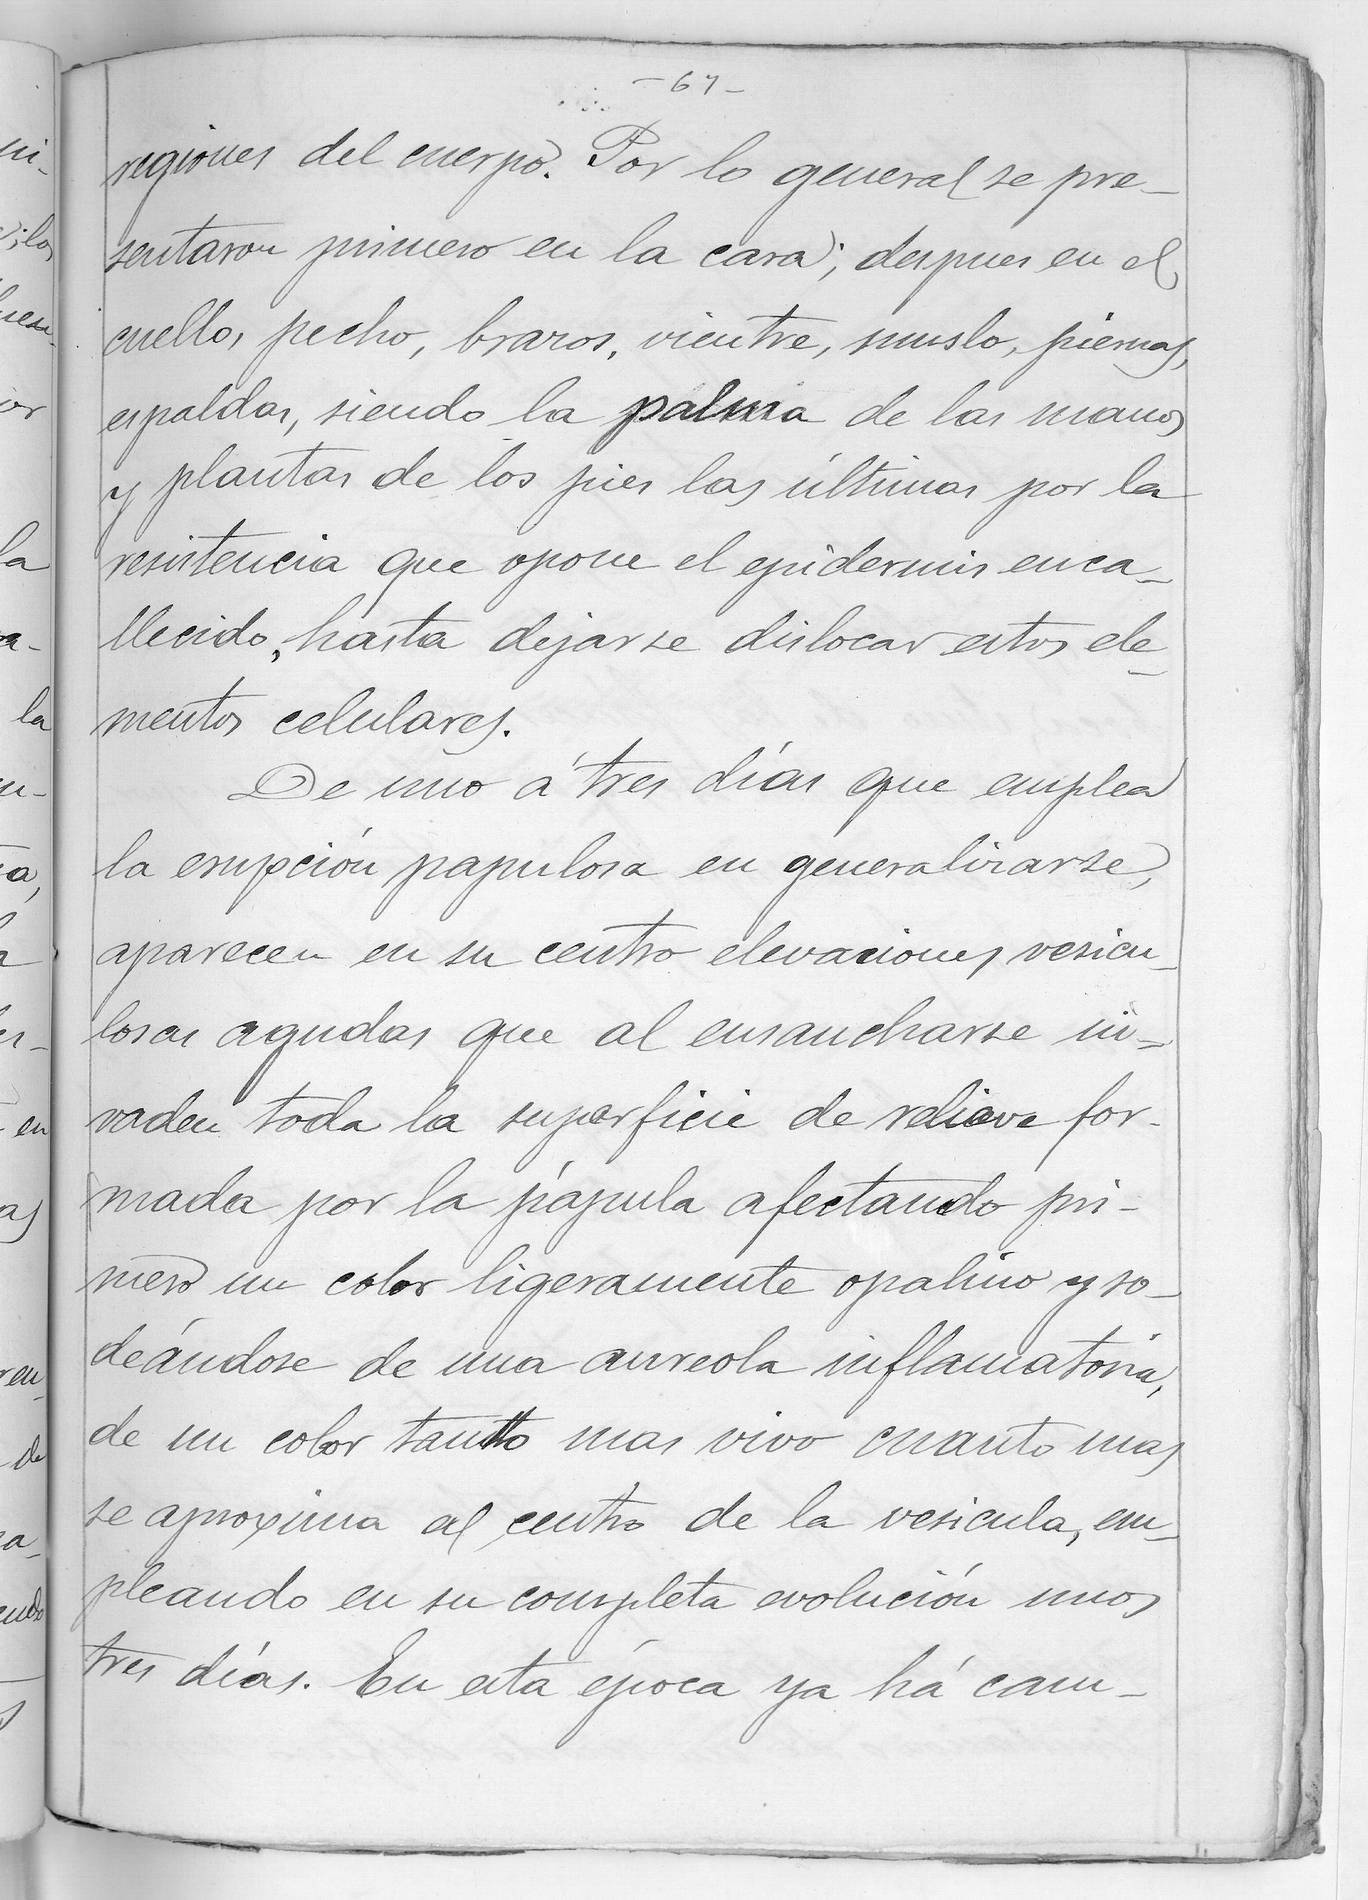 -67-
regiones del cuerpo. Por lo general se pre-
sentaron primero en la cara; despues en el
cuello, pecho, brazos, vientre, muslo, piernas,
espaldas, siendo la palma de las manos
y plantas de los pies las últimas por la
resistencia que opone el epidermis enca-
llecido, hasta dejarse dislocar estos ele-
mentos celulares.
De uno á tres días que emplea
la erupción papulosa en generalizarse,
aparecen en su centro elevaciones vesicu-
losas agudas que al ensancharse in-
vaden toda la superficie de relieve for-
mada por la pápula afectando pri-
mero un color ligeramente opalino y ro-
deándose de una aureola inflamatoria,
de un color tanto mas vivo cuanto mas
se aproxima al centro de la vesicula, em-
pleando en su completa evolución unos
tres días. En esta época ya há cam-